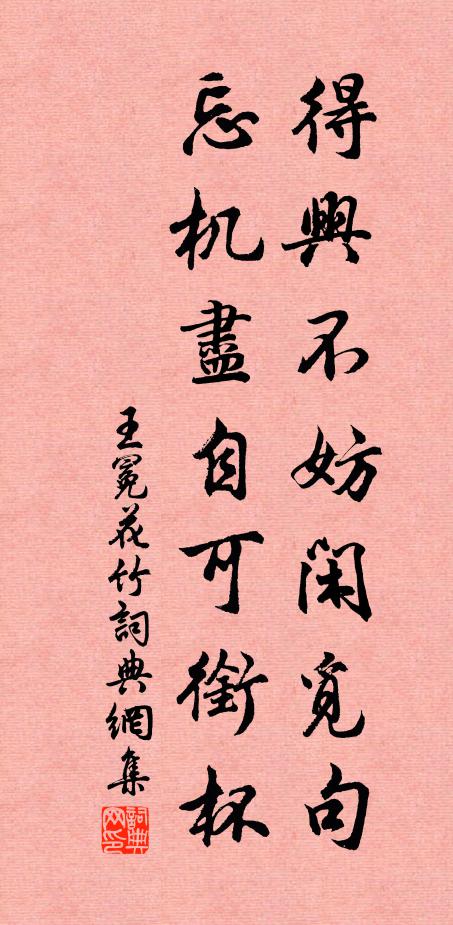 得興不妨閑覓句
忘机盡自可銜杯
王冕花竹詞典網集
詞典网印